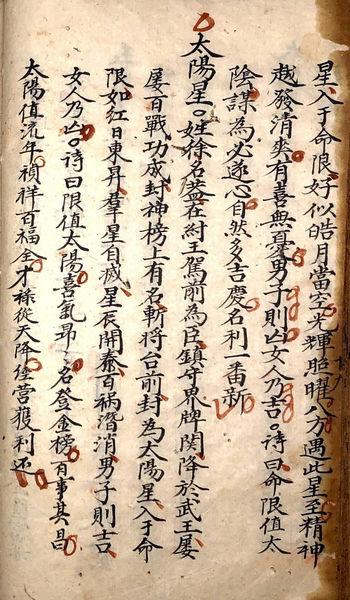 星入于命限好似皓月當空光輝照曜八方遇此星至精神
越發清爽有喜無憂男子則凶女人乃吉詩曰命限值太
陰謀為必遂心自然多吉慶名利一番新
太陽星姓徐名蓋在紂王駕前為臣鎮守界牌関降於武王屡
屡百戰功成封神榜上有名斬將台前封為太陽星入于命
限如紅日東昇羣星自滅星辰開泰百禍潛消男子則吉
女人乃凶詩曰限值太陽喜氣昂々名登金榜百事其昌
太陽值流年禎祥百福全才祿從天降经营獲利还